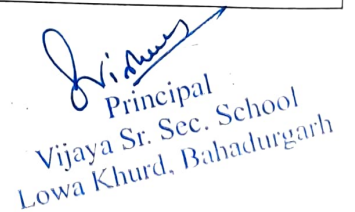 Principal
Vijaya Sr. Sec. School
Lowa Khurd, Bahadurgarh